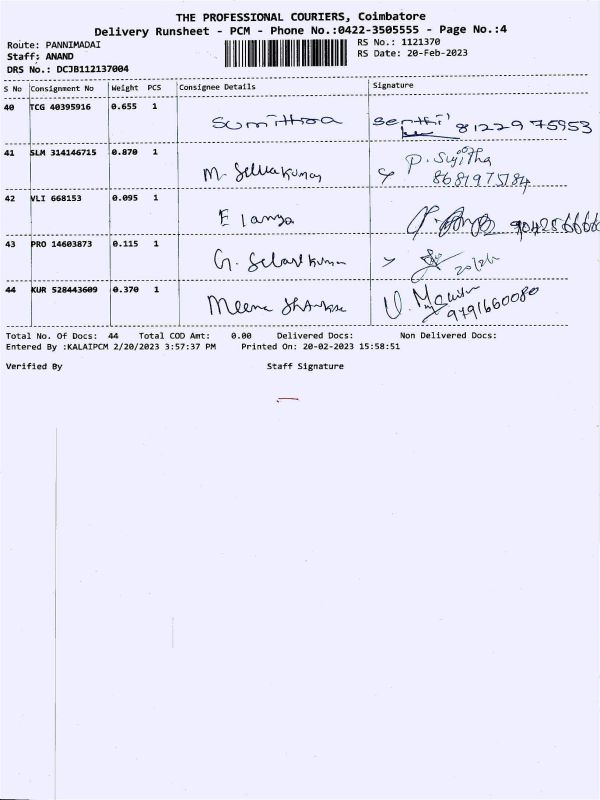 THE PROFESSIONAL COURIERS, Coimbatore
Delivery Runsheet - PCM - Phone No.:0422-3505555 - Page No.:4
Route: PANNIMADAI
RS No.: 1121370
Staff: ANAND
RS Date: 20-Feb-2023
DRS No.: DCJB112137004
S No Consignment No Weight PCS Consignee Details Signature
40 TCG 40395916 0.655 1 Sumithra Senthil 8122975953
41 SLM 314146715 0.870 1 M. Selvakumar P. Sujitha
8681975184
42 VLI 668153 0.095 1
43 PRO 14603873 0.115 1 G.
44 KUR 528443609 0.370 1 Meena
9791660080
Total No. Of Docs: 44 Total COD Amt: 0.00 Delivered Docs: Non Delivered Docs:
Entered By :KALAIPCM 2/20/2023 3:57:37 PM Printed On: 20-02-2023 15:58:51
Verified By Staff Signature